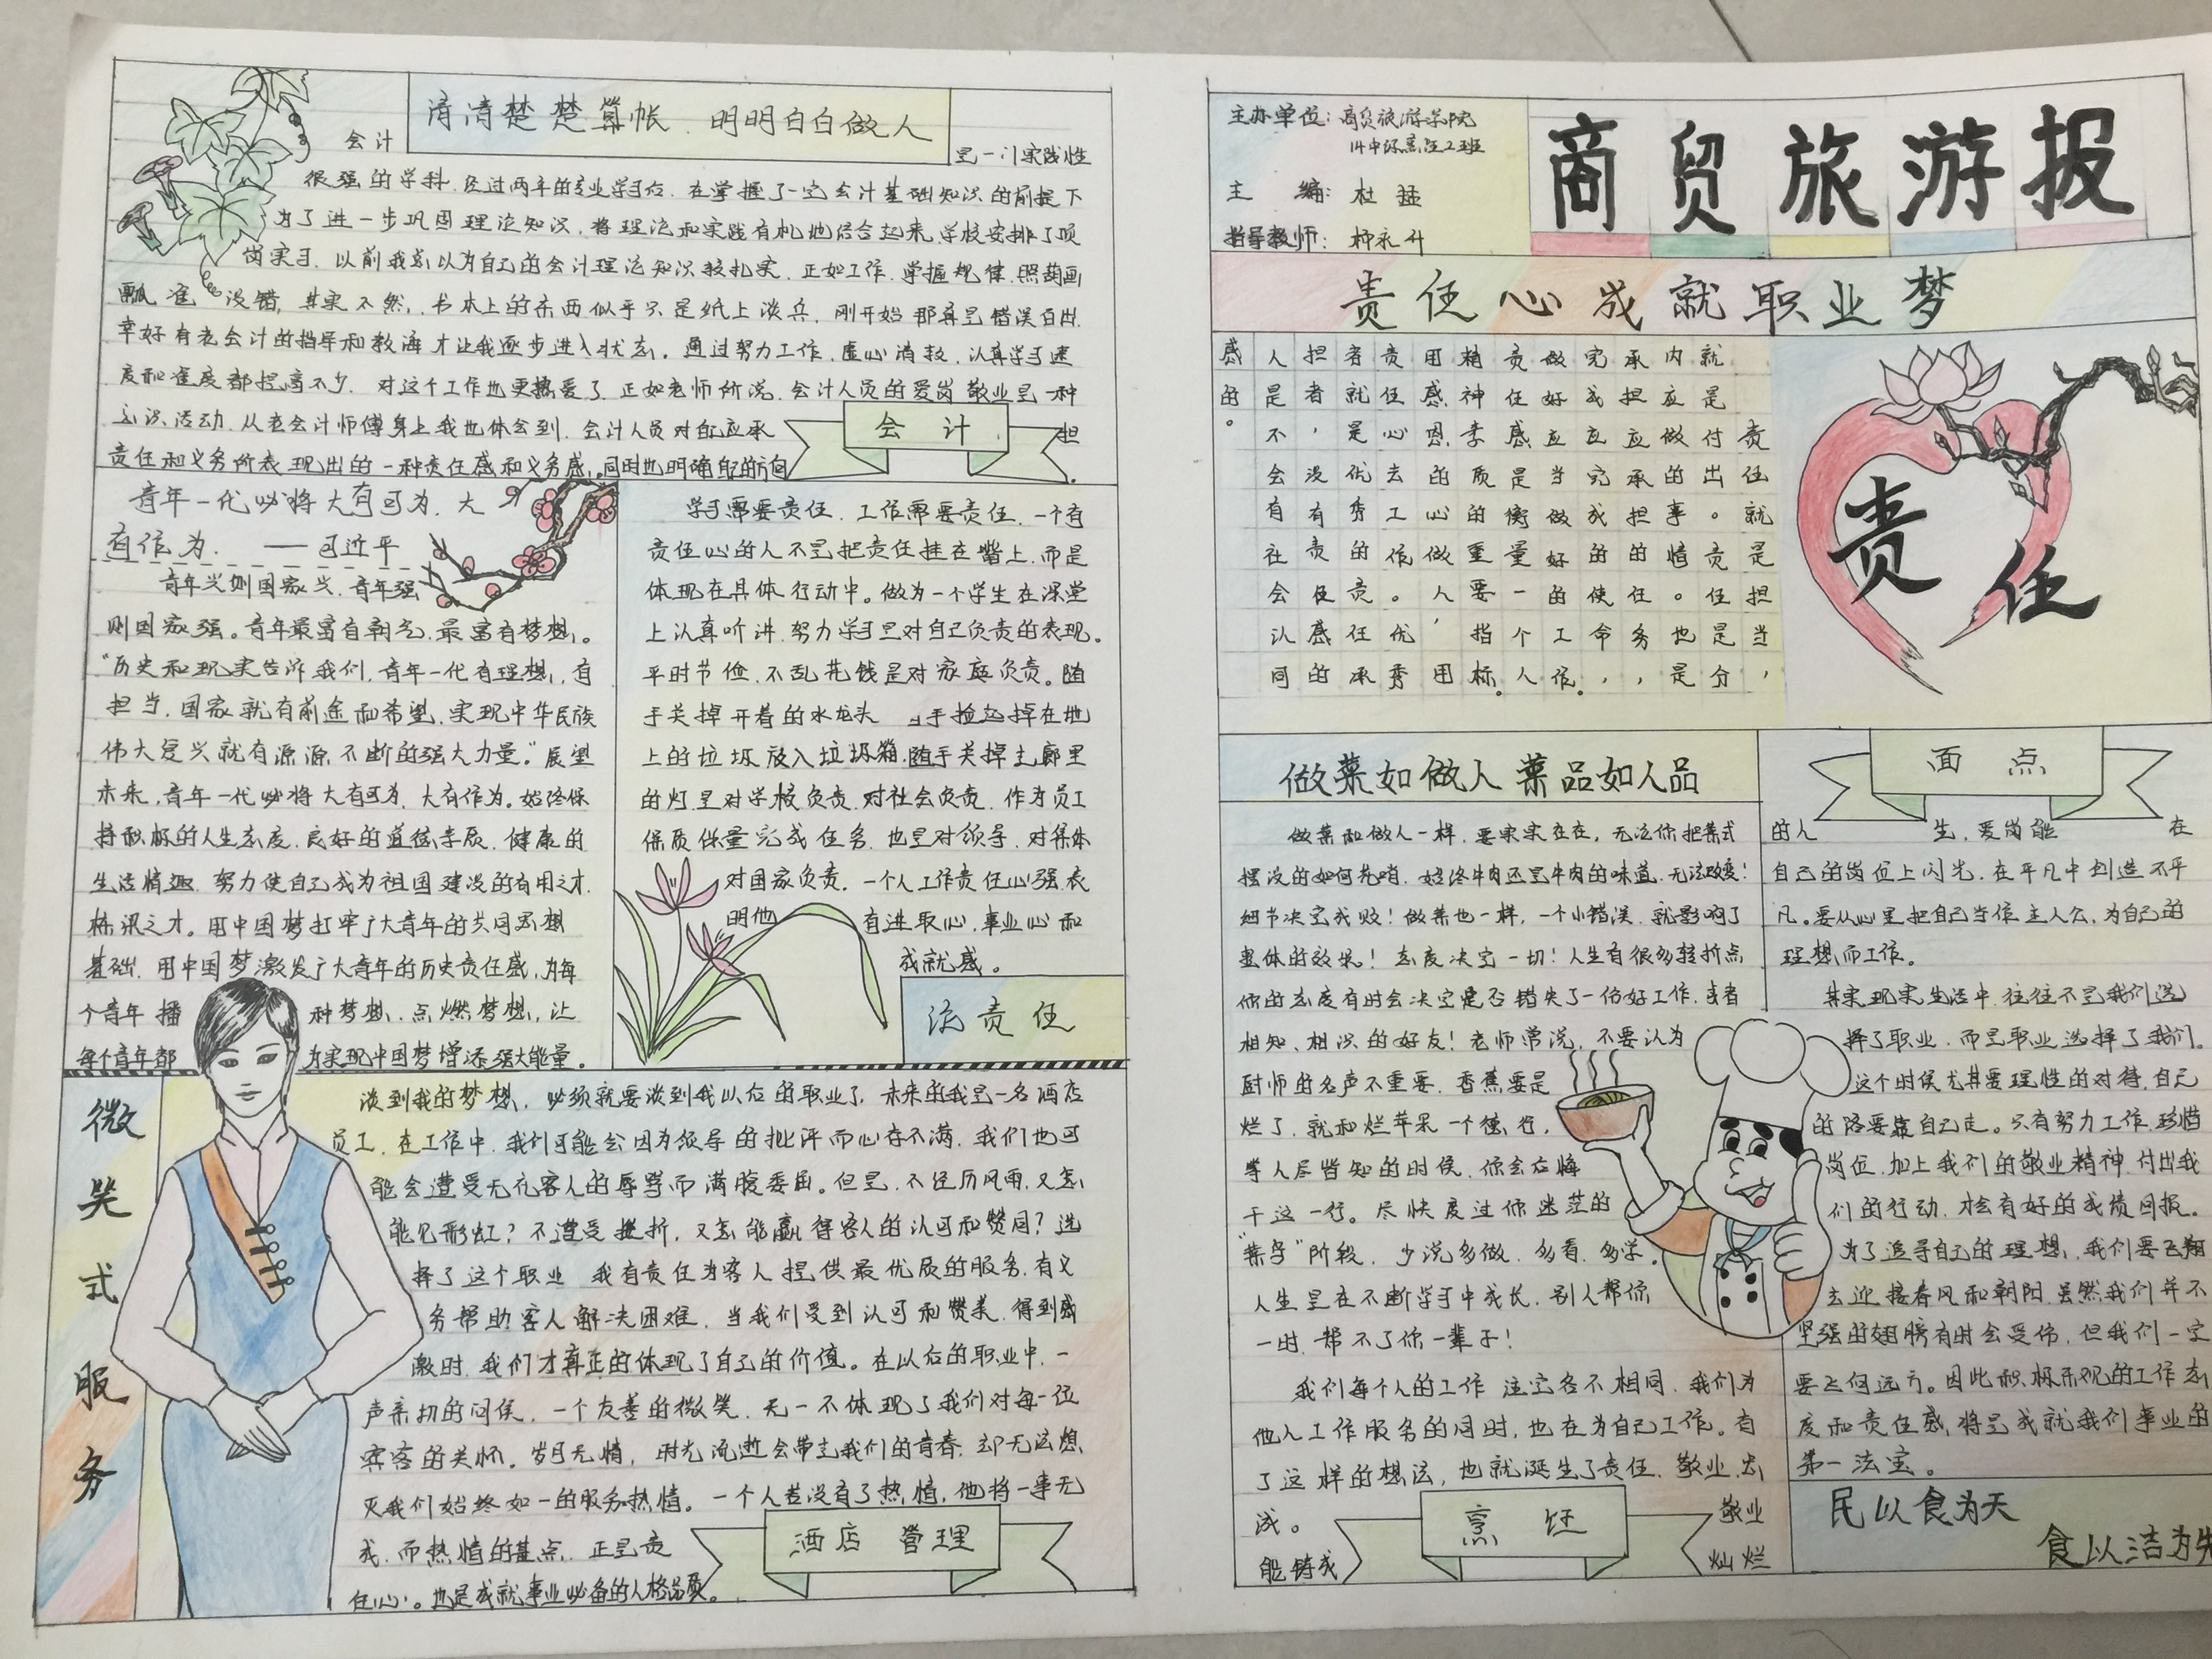 清清楚楚算帐、明明白白做人
会计
是一门实践性
很强的学科，经过两年的专业学习后，在掌握了一定会计基础知识的前提下
为了进一步巩固理论知识，将理论和实践有机地结合起来，学校安排了顶
岗实习，以前我总以为自己的会计理论知识较扎实，正如工作，掌握规律，照葫画
瓢准没错，其实不然，书本上的东西似乎只是纸上谈兵，刚开始那真是错误百出，
幸好有老会计的指导和教诲才让我逐步进入状态。通过努力工作，虚心请教，认真学习速
度和准度都提高不少，对这个工作也更热爱了，正如老师所说，会计人员的爱岗敬业是一种
意识活动，从老会计师傅身上我也体会到，会计人员对自己应承担
责任和义务所表现出的一种责任感和义务感，同时也明确自己的方向。
会 计
青年一代必将大有可为，大
有作为． ——习近平
青年兴则国家兴，青年强
则国家强。青年最富有朝气，最富有梦想。
“历史和现实告诉我们，青年一代有理想，有
担当，国家就有前途和希望，实现中华民族
伟大复兴就有源源不断的强大力量。”展望
未来，青年一代必将大有可为，大有作为。始终保
持积极的人生态度，良好的道德素质，健康的
生活情趣，努力使自己成为祖国建设的有用之才，
栋梁之才。用中国梦打牢广大青年的共同思想
基础，用中国梦激发广大青年的历史责任感，为每
个青年播种梦想，点燃梦想，让
每个青年都为实现中国梦增添强大能量。
学习需要责任，工作需要责任，一个有
责任心的人不是把责任挂在嘴上，而是
体现在具体行动中。做为一个学生在课堂
上认真听讲，努力学习是对自己负责的表现。
平时节俭，不乱花钱是对家庭负责。随
手关掉开着的水龙头 手捡起掉在地
上的垃圾放入垃圾箱，随手关掉走廊里
的灯是对学校负责，对社会负责，作为员工
保质保量完成任务，也是对领导，对集体
对国家负责。一个人工作责任心强表
明他有进取心，事业心和
成就感。
论责任
微笑式服务
谈到我的梦想，必须就要谈到我以后的职业了，未来的我是一名酒店
员工，在工作中，我们可能会因为领导的批评而心存不满，我们也可
能会遭受无礼客人的辱骂而满腹委屈。但是，不经历风雨，又怎
能见彩虹？不遭受挫折，又怎能赢得客人的认可和赞同？选
择了这个职业 我有责任为客人提供最优质的服务，有义
务帮助客人解决困难，当我们受到认可和赞美，得到感
激时，我们才真正的体现了自己的价值。在以后的职业中，一
声亲切的问侯，一个友善的微笑，无一不体现了我们对每一位
宾客的关怀。岁月无情，时光流逝会带走我们的青春，却无法熄
灭我们始终如一的服务热情。一个人若没有了热情，他将一事无
成，而热情的基点，正是责
任心。也是成就事业必备的人格品质。
酒店 管理
主办单位：商贸旅游学院
14中
主 编：杜
指导教师：柳永升
商贸旅游报
责任心成就职业梦
责任就是担当，
就是应付出。责任是分
内应做的事情。也是
承担应承担的任务，
完成应完成的使命，
做好应当做好的工作。
责任感是衡量一个人
精神素质的重要指标。
用感恩的心做人，用
责任心去工作。优秀
者就是优秀的责任承
担者，没有责任感的
人是不会有社会认同
感的。
责任
做菜如做人 菜品如人品
做菜和做人一样，要实实在在，无论你把菜式
摆设的如何花哨，始终牛肉还是牛肉的味道，无法改变！
细节决定成败！做菜也一样，一个小错误，就影响了
整体的效果！态度决定一切！人生有很多转折点
你的态度有时会决定是否错失了一份好工作，或者
相知、相识的好友！老师常说，不要认为
厨师的名声不重要，香蕉要是
烂了，就和烂苹果一个德行，
等人尽皆知的时侯，你会后悔
干这一行。尽快度过你迷茫的
“菜鸟”阶段，少说多做，多看，多学。
人生是在不断学习中成长，别人帮你
一时，帮不了你一辈子！
我们每个人的工作注定各不相同，我们为
他人工作服务的同时，也在为自己工作。有
了这样的想法，也就诞生了责任，敬业，忠
诚。敬业
能铸成灿烂
烹 饪
面 点
的人生，爱岗能在
自己的岗位上闪光，在平凡中创造不平
凡。要从心里把自己当作主人公，为自己的
理想而工作。
其实现实生活中，往往不是我们选
择了职业，而是职业选择了我们。
这个时侯尤其要理性的对待，自己
的路要靠自己走。只有努力工作，珍惜
岗位，加上我们的敬业精神，付出我
们的行动，才会有好的成绩回报。
为了追寻自己的理想，我们要飞翔
去迎接春风和朝阳，虽然我们并不
坚强的翅膀有时会受伤，但我们一定
要飞向远方。因此积极乐观的工作态
度和责任感，将是成就我们事业的
第一法宝。
民以食为天
食以洁为先